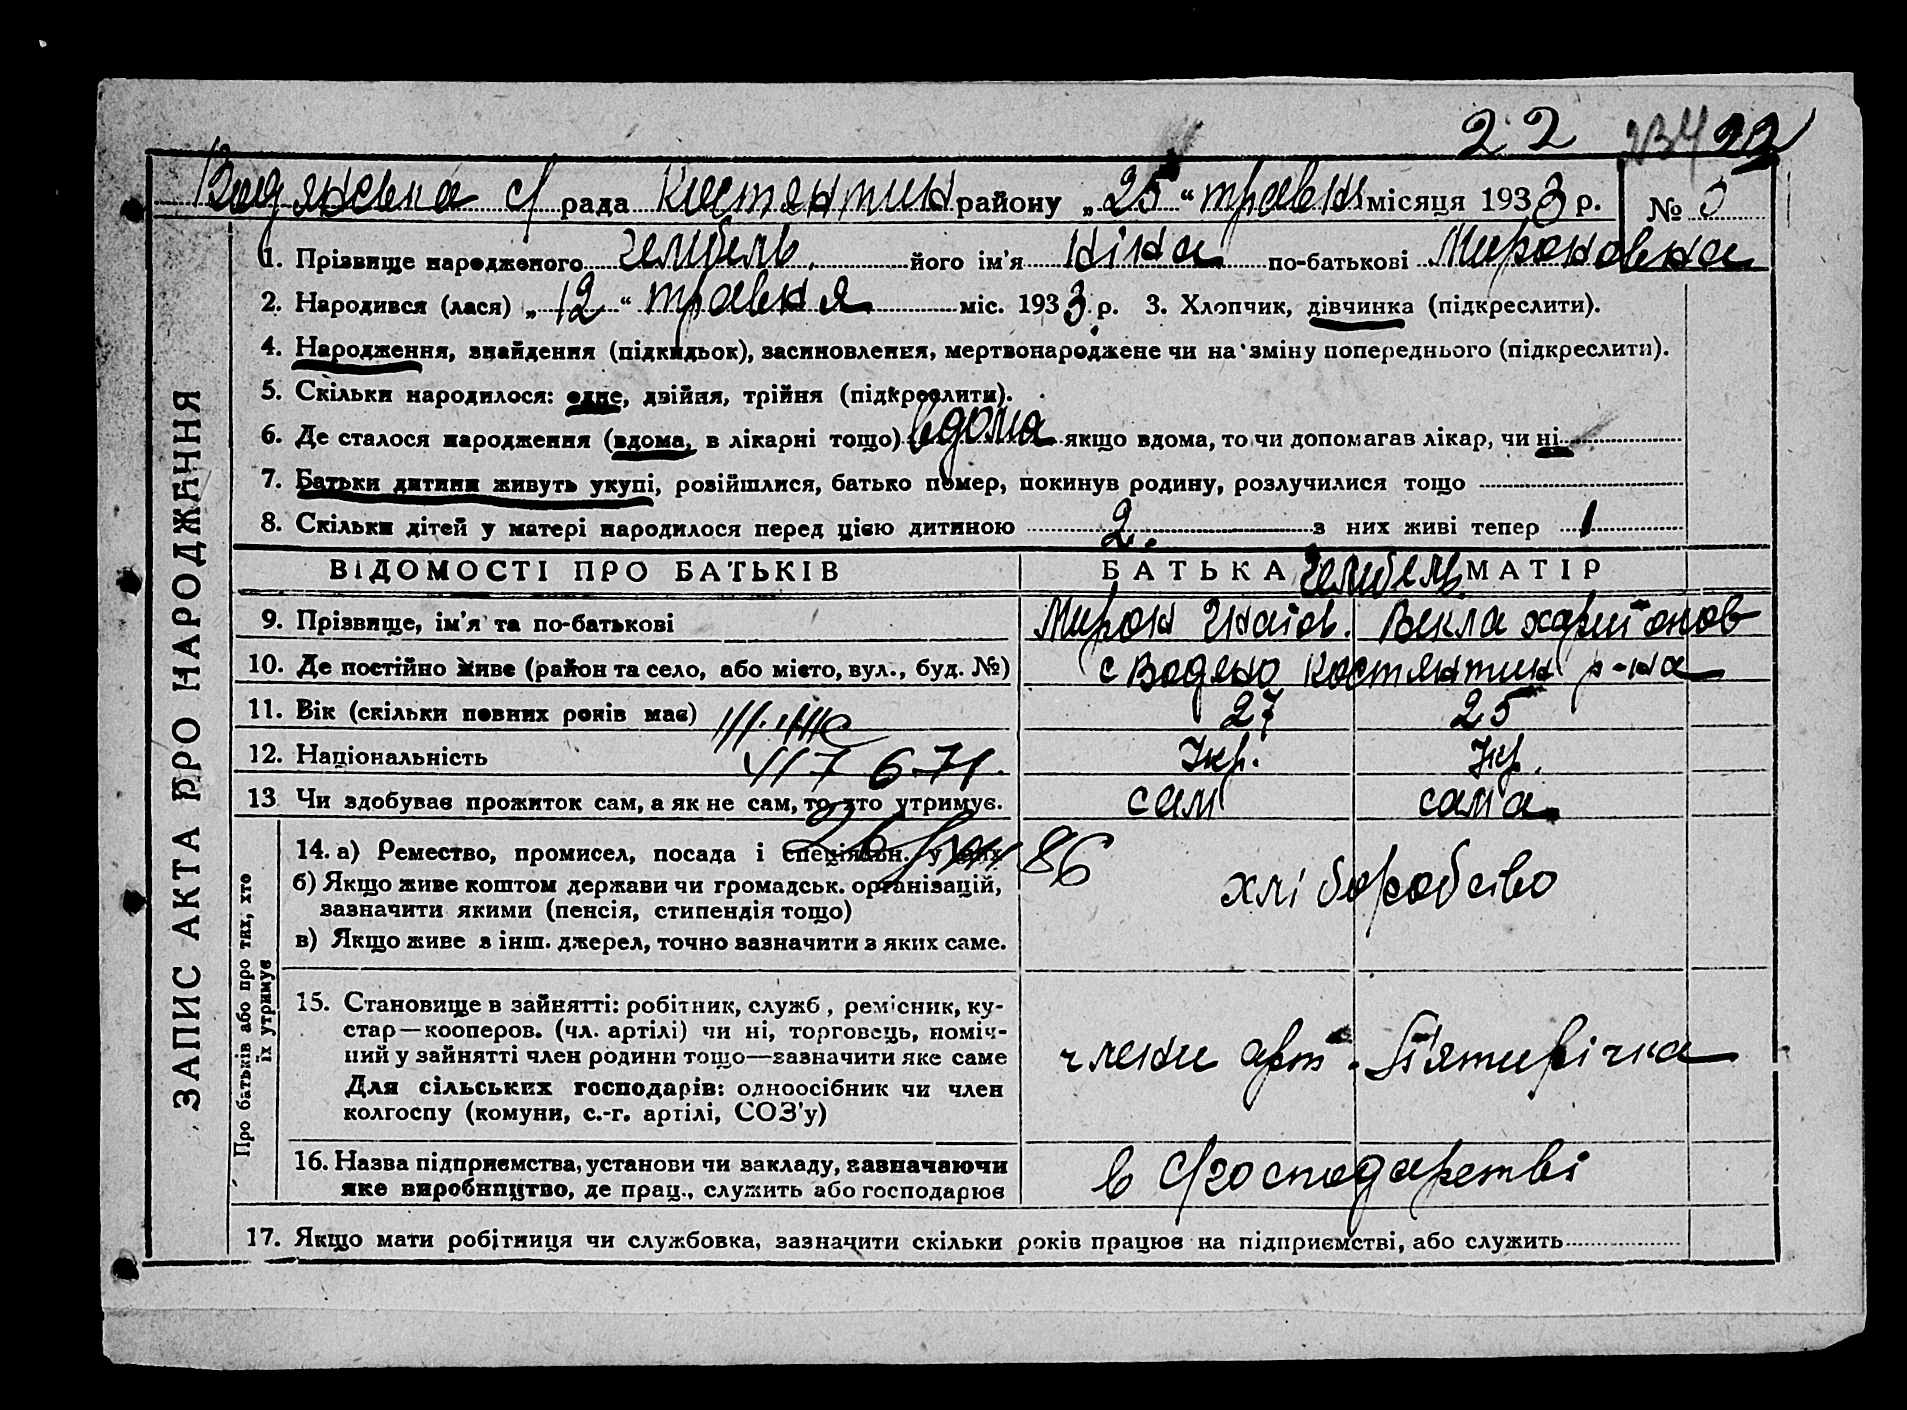 22 234 22
Водянська с/рада Костянтин району „25“ травня місяця 1933 р. № 3
1. Прізвище народженого Челибель його ім'я Ніна по-батькові Мироновна
2. Народився (лася) „12“ травня міс. 1933 р. 3. Хлопчик, дівчинка (підкреслити).
4. Народження, знайдення (підкидьок), засиновлення, мертвонароджене чи на зміну попереднього (підкреслити).
5. Скільки народилося: одне, двійня, трійня (підкреслити).
6. Де сталося народження (вдома, в лікарні тощо) вдома якщо вдома, то чи допомагав лікар, чи ні
7. Батьки дитини живуть укупі, розійшлися, батько помер, покинув родину, розлучилися тощо
8. Скільки дітей у матері народилося перед цією дитиною 2. з них живі тепер 1
ВІДОМОСТІ ПРО БАТЬКІВ БАТЬКА Челибель МАТІР
9. Прізвище, ім'я та по-батькові Мирон Гнатов. Векла Харитонов
10. Де постійно живе (район та село, або місто, вул., буд. №) с Водяно Костянтин р-на
11. Вік (скільки повних років має) 27 25
12. Національність Укр. Укр.
13 Чи здобуває прожиток сам, а як не сам, то хто утримує. сам сама
14. а) Ремество, промисел, посада і спеціяльн. у них 86
б) Якщо живе коштом держави чи громадськ. організацій,
зазначити якими (пенсія, стипендія тощо)
в) Якщо живе з інш. джерел, точно зазначити з яких саме.
хліборобство
15. Становище в зайнятті: робітник, служб, ремісник, ку-
стар—кооперов. (чл. артілі) чи ні, торговець, поміч-
ний у зайнятті член родини тощо—зазначити яке саме
Для сільських господарів: одноосібник чи член
колгоспу (комуни, с.-г. артілі, СОЗ'у)
члени арт. П'ятирічка
16. Назва підприємства, установи чи закладу, зазначаючи
яке виробництво, де прац., служить або господарює
в с/господарстві
17. Якщо мати робітниця чи службовка, зазначити скільки років працює на підприємстві, або служить
ЗАПИС АКТА ПРО НАРОДЖЕННЯ
Про батьків або про тих, хто
їх утримує